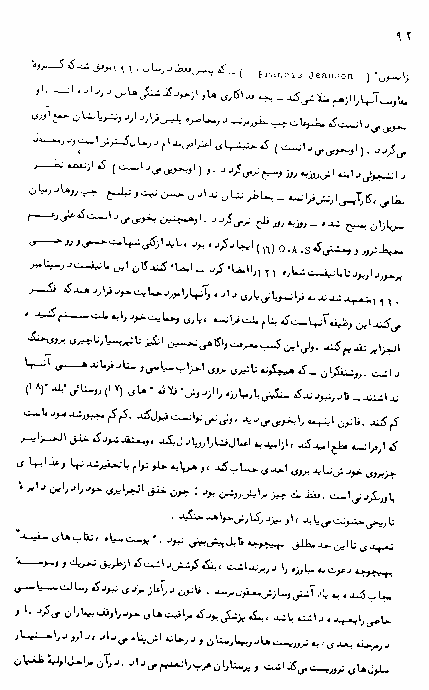 ۹۲
ژانسون" ( Francis Jeanson ) ـ که پلیس فقط در سال ۱۹۶۰ موفق شد که گروه
مقاومت آنها را از هم متلاشی کند ـ بچه فداکاری ها و از خود گذشتگی هائی دارد
بخوبی می دانست که مطبوعات چپ بطور مرتب در محاصره پلیس قرار دارد و نشریاتشان جمع آوری
می گردد . ( او بخوبی می دانست ) که جنبشهای اعتراضی مدام در حال گسترش است و نهضت
دانشجوئی دامنه اش روز به روز وسیع تر می گردد . و ( او بخوبی می دانست ) که از نقطه نظر
نظامی ، کارآیی ارتش فرانسه ـ بخاطر نشان ندادن حسن نیت و تبلیغ چپ روها در میان
سربازان بسیج شده ـ روز به روز فلج تر می گردد . او همچنین بخوبی می دانست که علی رغم
محیط ترور و وحشتی که O.A.S (۱۶) ایجاد کرده بود ، باید از کلی شهامت جسمی و روحی
برخوردار بود تا مانیفست شماره ۱۲۱ را امضاء کرد ـ امضاء کنندگان این مانیفست در سپتامبر
۱۹۶۰ متعهد شدند به فرانسویانی یاری داده و آنها را مورد حمایت خود قرار دهند که فکر
می کنند این وظیفه آنهاست که بنام ملت فرانسه ، یاری و حمایت خود را به ملت ستمکش
الجزایر تقدیم کنند . ولی این کسب معرفت و آگاهی تحسین انگیز تاثیر بسیار ناچیزی بروی جنگ
داشت . روشنفکران ـ که هیچگونه تاثیری بروی احزاب سیاسی و ستاد فرماندهی آنها
نداشتند ـ قادر نبودند که سنگینی بار مبارزه را از دوش " فلاقه " های (۱۷) روستائی "بلد" (۱۸)
کم کنند . فانون اینهمه را بخوبی می دید ، ولی نمی توانست قبول کند . کم کم مجبور شد خود را
که از فرانسه قطع امید کند ، از امید به اعمال فشار اروپا دل بکند ، و معتقد شود که خلق الجزایر
جز بروی خودش نباید بروی احدی حساب کند ، و هر پایه حلو توام با تحقیر شدنها و عذابهای
باورنکردنی است . فقط یک چیز برایش روشن بود : چون خلق الجزایری خود را در این دایرهٔ
تاریخی خشونت می یابد ، او نیز در کنارش خواهد جنگید .
تعهدی تا این حد مطلق بهیچوجه قابل پیش بینی نبود . " پوست سیاه ، نقاب های سفید "
بهیچوجه دعوت به مبارزه را در بر نداشت ، بلکه کوشش داشت که از طریق تحریک و وسوسه
مجاب کننده به یک آشتی و سازش معقول برسد . فانون در آغاز مردی نبود که رسالت سیاسی
خاصی را بعهده داشته باشد ، بلکه پزشکی بود که مراقبت های خود را وقف بیماران می کرد . او
در مرحله بعدی ، به تروریست ها در بیمارستان و در خانه اش پناه می داد ، دارو در اختیار
سلول های تروریست می گذاشت و پرستاران عرب را تعلیم می داد . در آن مراحل اولیهٔ طغیان